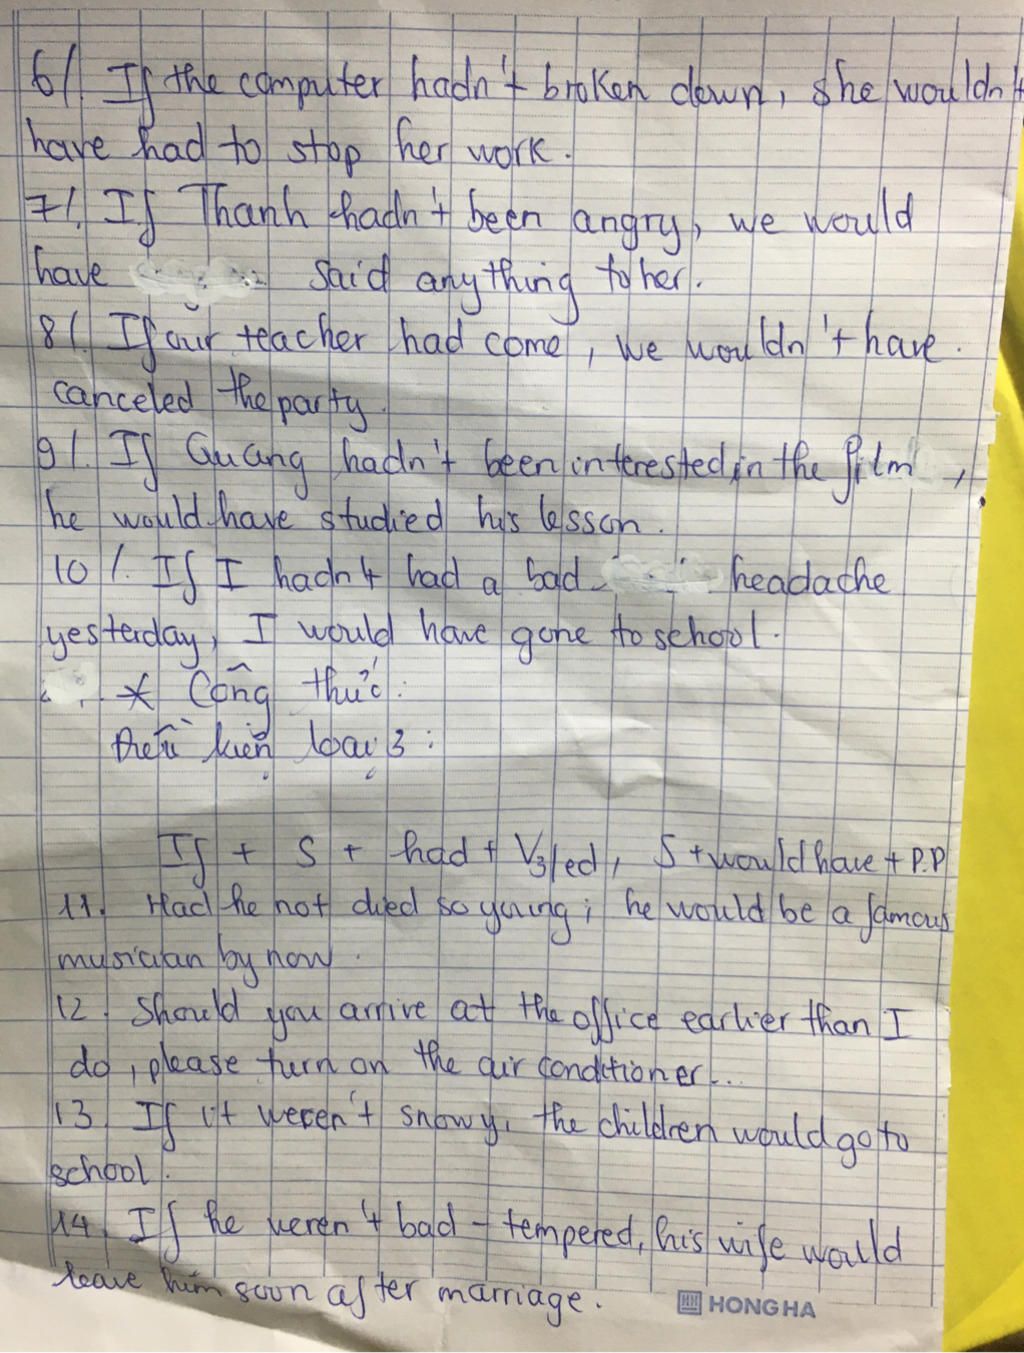 6/. If the computer hadn't broken down, she wouldn't
have had to stop her work.
7/. If Thanh hadn't been angry, we would
have said anything to her.
8/. If our teacher had come, we wouldn't have.
canceled the party.
9/. If Quang hadn't been interested in the film,
he would have studied his lesson.
10/. If I hadn't had a bad headache
yesterday, I would have gone to school.
* Công thức:
Điều kiện loại 3:
If + S + had + V3/ed, S + would have + P.P
11. Had he not died so young; he would be a famous
musician by now.
12. Should you arrive at the office earlier than I
do, please turn on the air conditioner...
13. If it weren't snowy, the children would go to
school.
14. If he weren't bad-tempered, his wife would
leave him soon after marriage.
HH HONG HA